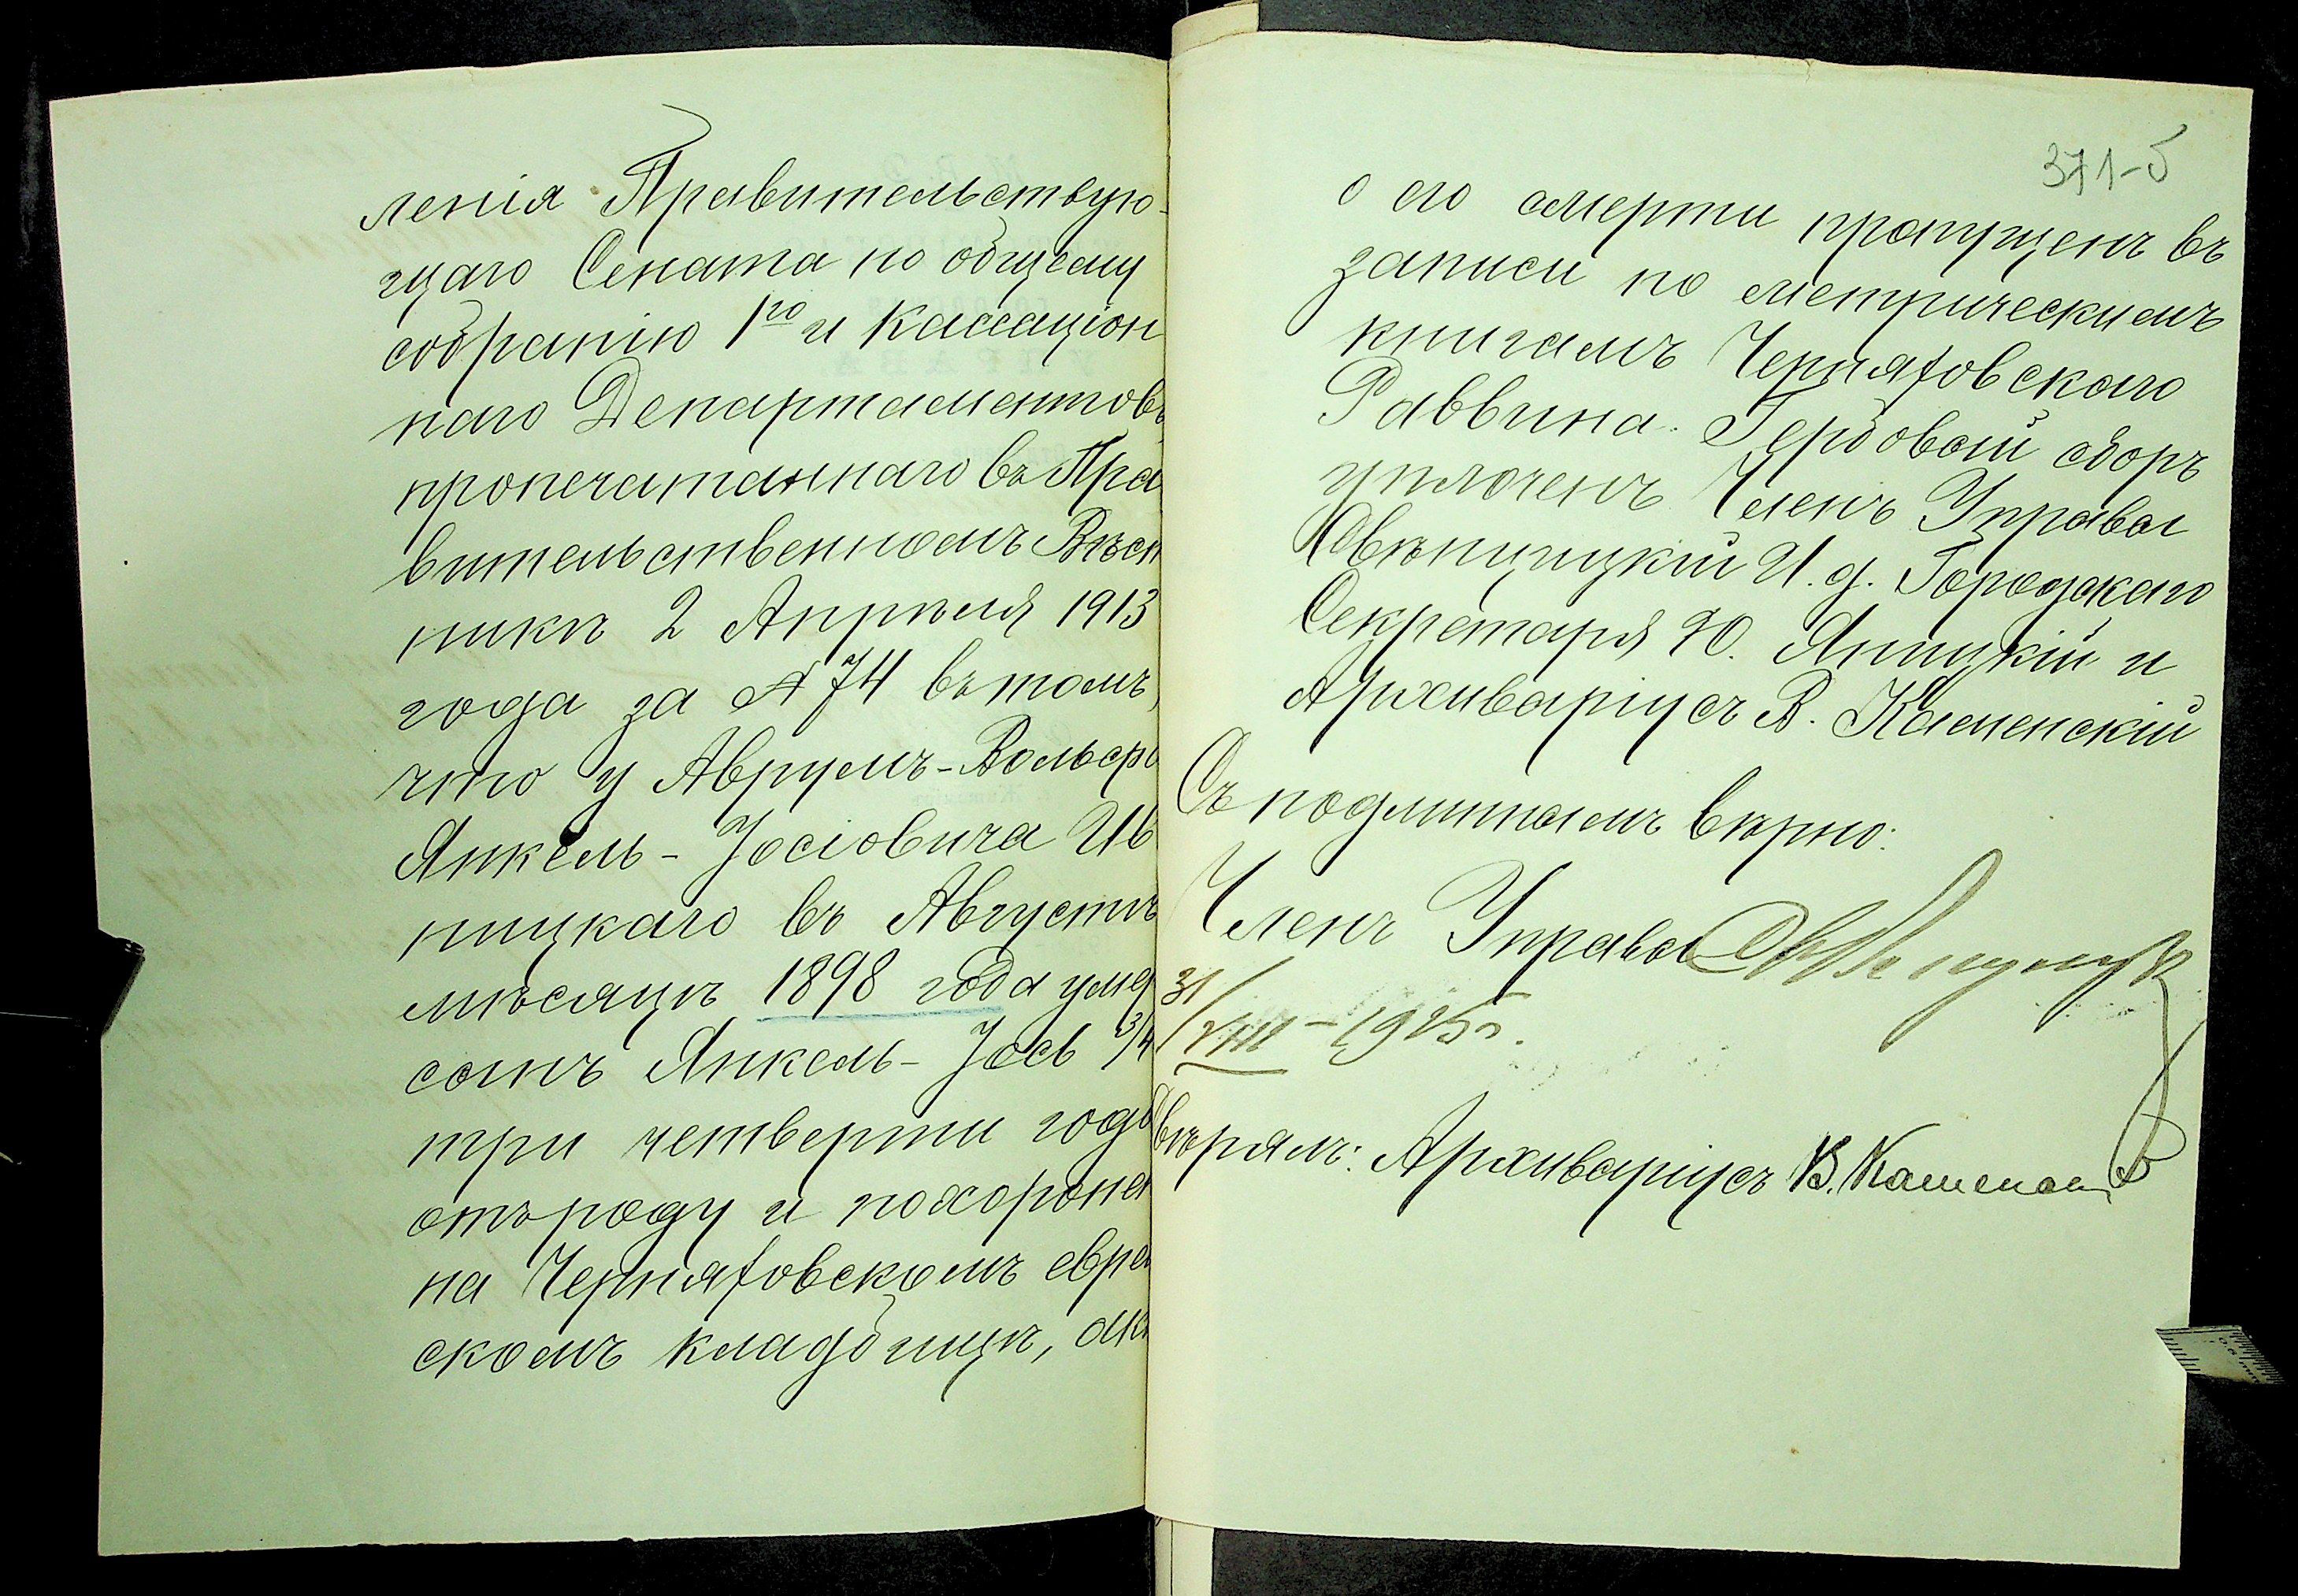 ленія Правительствую-
щаго Сената по общему
собранію 1го и Кассаціон
наго Департаментовъ
пропечатаннаго въ Пра
вительственномъ Вѣст
никѣ 2 Апрѣля 1913
года за № 74 въ томъ,
что у Аврумъ-Вольфъ
Янкель-Іосіовича Ив
ницкаго въ Августѣ
мѣсяцѣ 1898 года умер
сынъ Янкель-Іось 3/4
три четверти года
отъ роду и похоронен
на Черняховскомъ еврей
скомъ кладбищѣ, акт
371-б
о его смерти пропущенъ въ
записи по метрическимъ
книгамъ Черняховскаго
Раввина. Гербовый сборъ
уплоченъ Членъ Управы
И. д. Городскаго
Секретаря Ю. Яницкій и
Архиваріусъ В. Каменскій
Съ подлиннымъ вѣрно:
Членъ Управы
31/VIII-1915 г.
Свѣрялъ: Архиваріусъ В. Каменскій